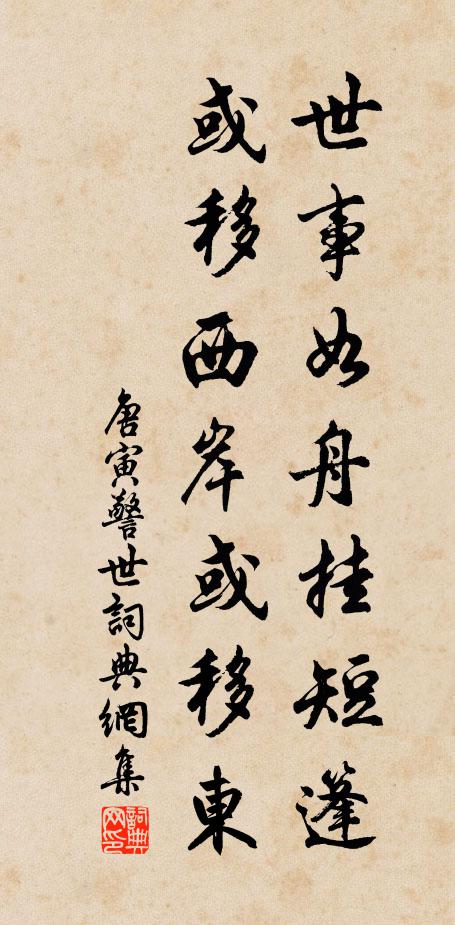 世事如舟挂短篷
或移西岸或移東
唐寅警世詞典網集
詞典网印